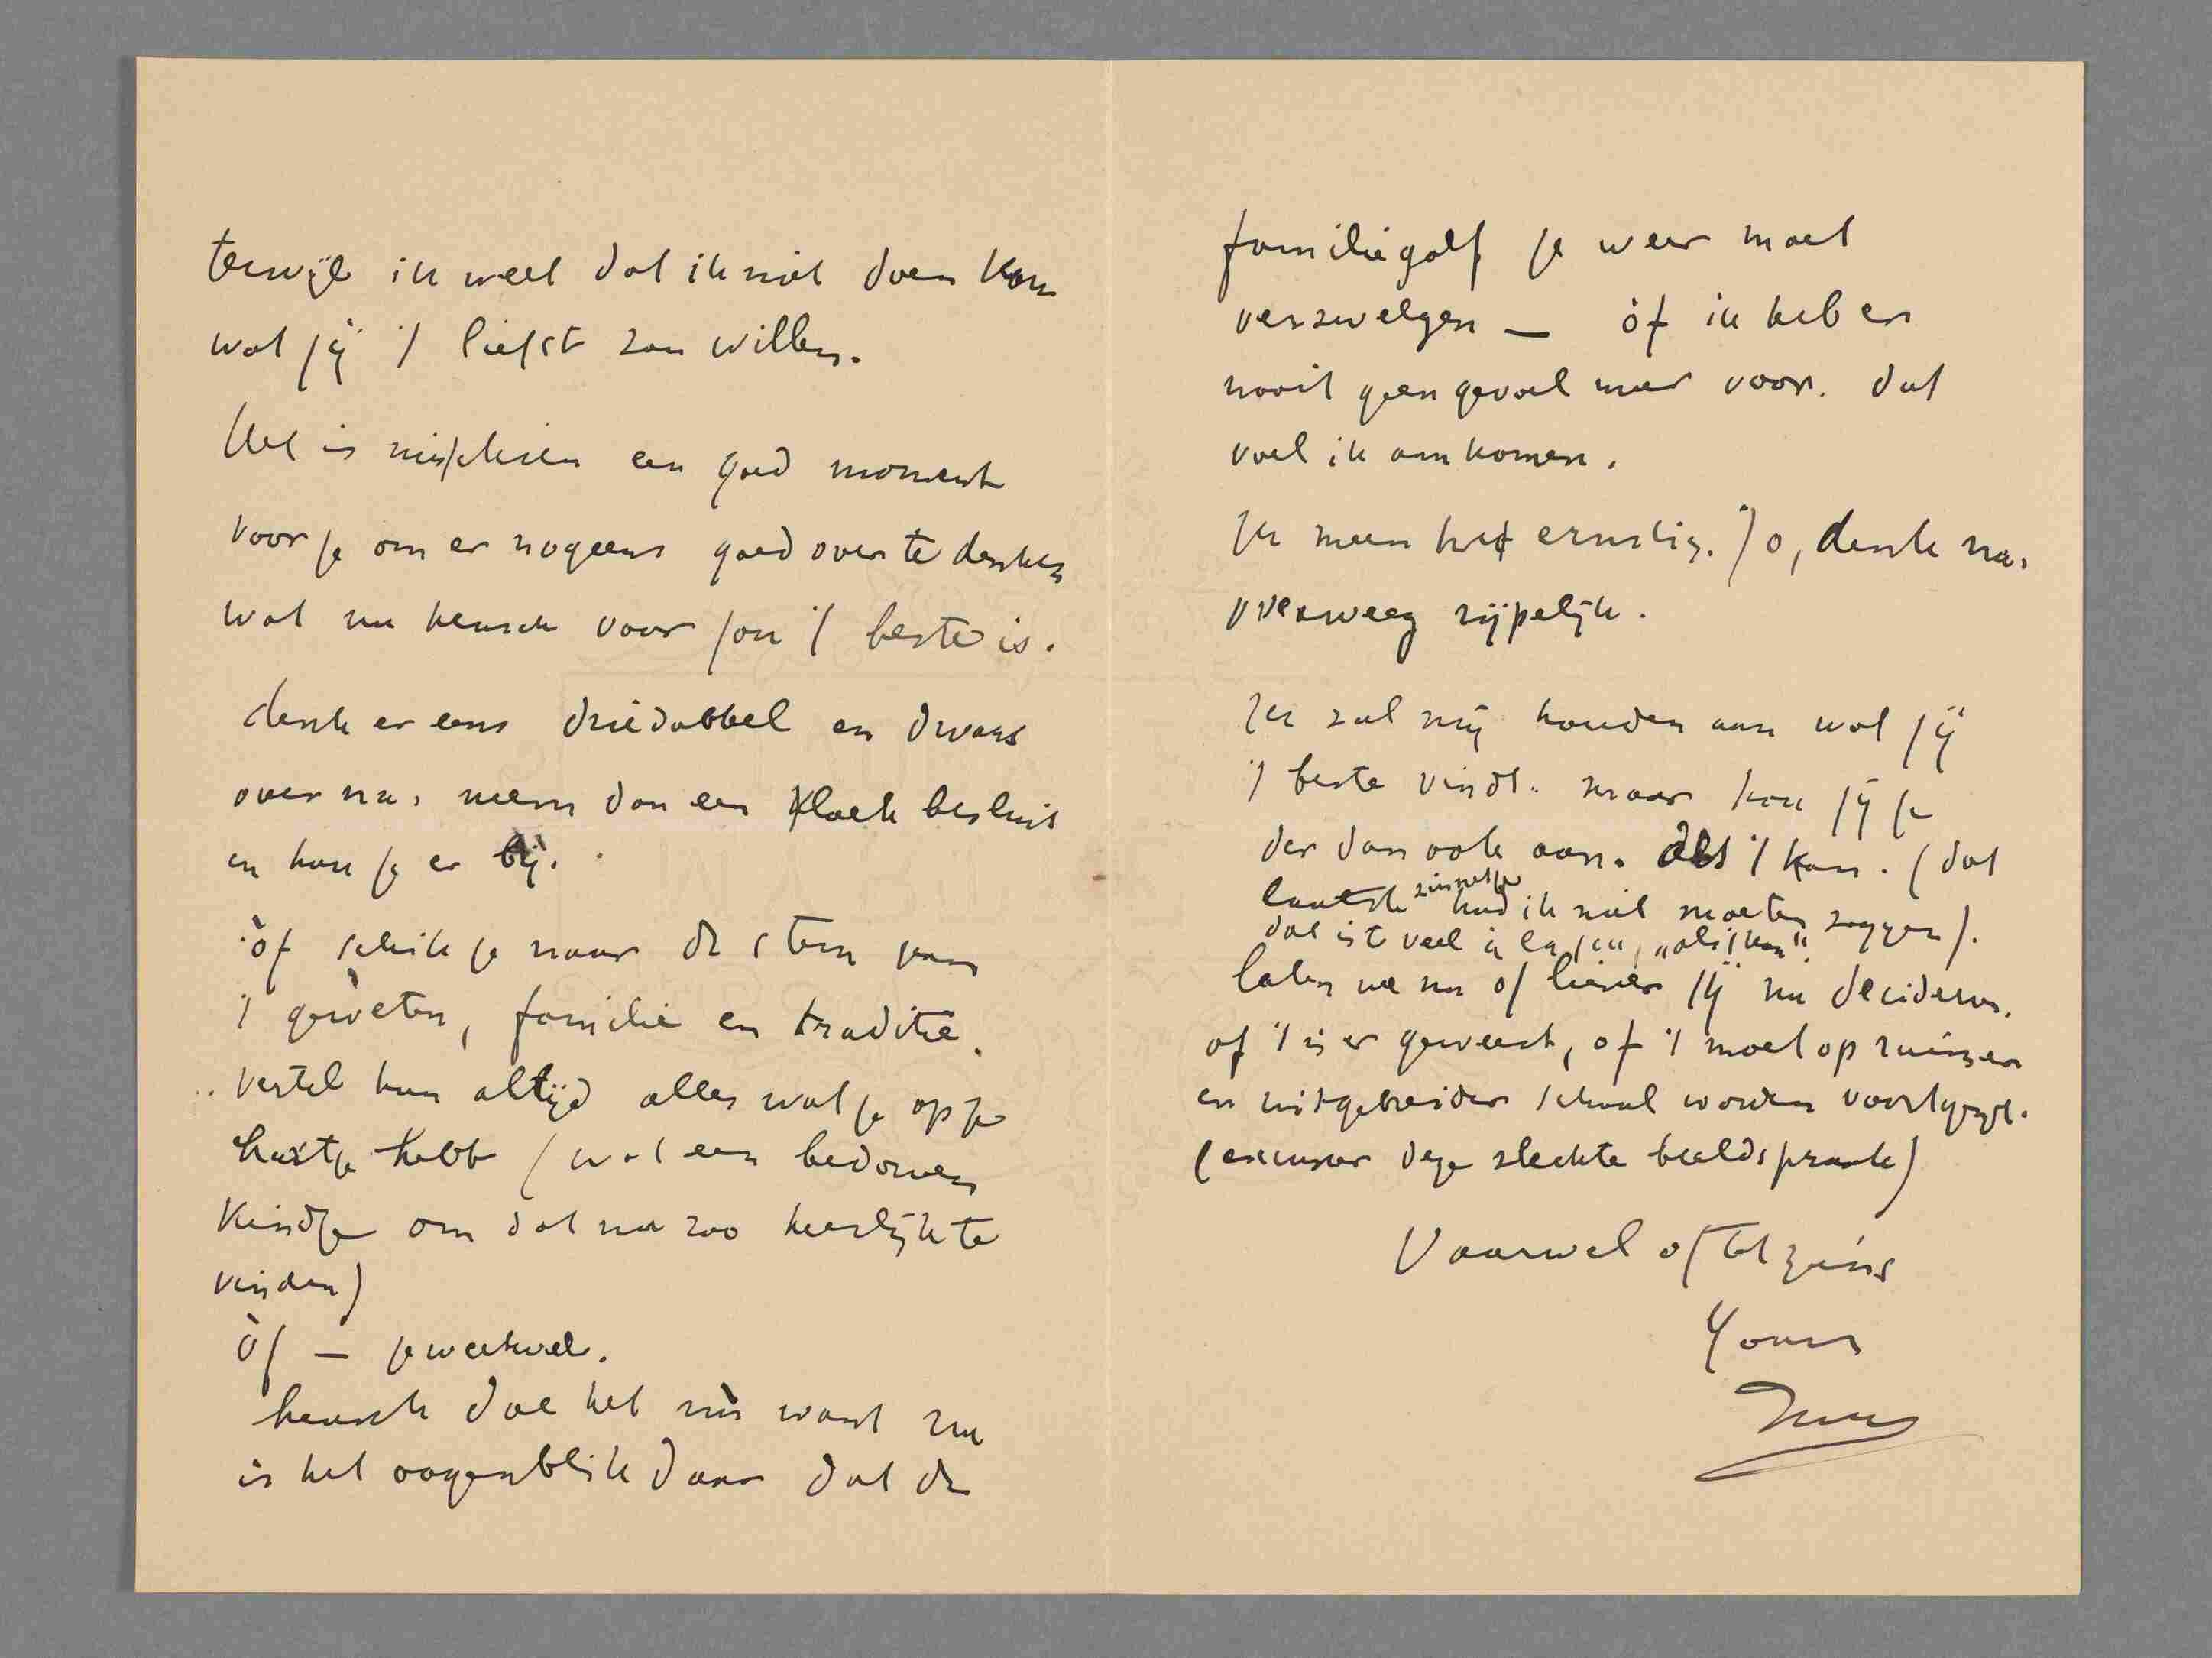 terwijl ik weet dat ik niet doen kan
wat jij 't liefst zou willen.
Het is misschien een goed moment
voor je om er nogeens goed over te denken
wat nu heusch voor jou 't beste is.
denk er eens driedobbel en dwars
over na, neem dan een kloek besluit
en hou je er bij.
òf schik je naar de stem van
't gewèten, familie en traditie.
vertel hun altijd alles wat je op je
hartje hebt (wat een bedorven
kindje om dat nu zoo heerlijk te
vinden)
òf — je weet wel.
heusch doe het nù want nu
is het oogenblik daar dat de
familiegolf je weer moet
verzwelgen — òf ik heb er
nooit geen gevoel meer voor. dat
voel ik aankomen.
Ik meen het ernstig. Jo, denk na,
overweeg rijpelijk.
Ik zal mij houden aan wat jij
't beste vindt. maar hou jij je
der dan ook aan. als 't kan. (dat
laatste zinnetje had ik niet moeten zeggen).
dat is te veel à la Jo", "als 't kan".
laten we nu of liever jij nu decideren.
of 't is er geweest, of 't moet op ruimer
en uitgebreider schaal worden voortgezet.
(excuseer deze slechte beeldspraak)
Vaarwel of tot ziens
Yours